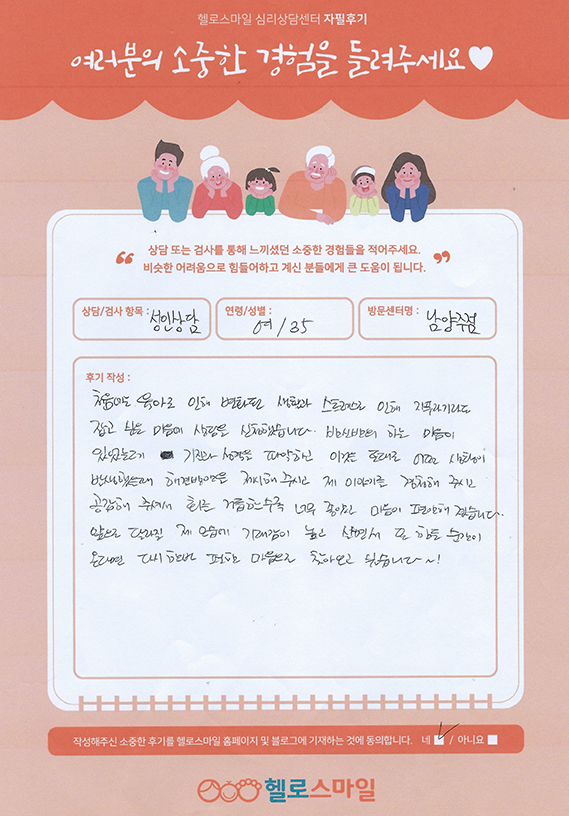 헬로스마일 심리상담센터 자필후기
여러분의 소중한 경험을 들려주세요
상담 또는 검사를 통해 느끼셨던 소중한 경험들을 적어주세요.
비슷한 어려움으로 힘들어하고 계신 분들에게 큰 도움이 됩니다.
상담/검사 항목 : 성인상담
연령/성별 : 여/35
방문센터명 : 남양주점
후기 작성 :
육아로 인해 변화된 생활과 스트레스로 인해 지푸라기라도
잡고 싶은 마음에 상담을 신청했습니다. 반신반의 하는 마음이
있었는데 기질과 성격을 파악하신 이것을 토대로 어떤 상황이
발생했을때 해결방안을 제시해 주시고 제 이야기를 경청해 주시고
공감해 주셔서 회기를 거듭할수록 너무 좋았고 마음이 편안해 졌습니다.
앞으로 달라질 제 모습에 기대감이 높고 살면서 또 힘든 순간이
온다면 다시한번 편한 마음으로 찾아오고 싶습니다~!
작성해주신 소중한 후기를 헬로스마일 홈페이지 및 블로그에 기재하는 것에 동의합니다. 네 / 아니요
헬로스마일